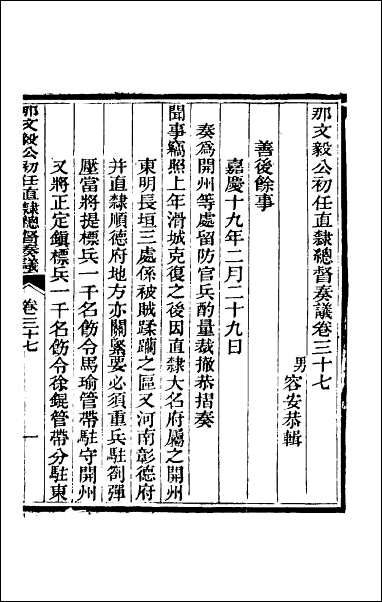 那文毅公初任直隸總督奏議卷三十七
男容安恭輯
善後餘事
嘉慶十九年二月二十九日
奏爲開州等處留防官兵酌量裁撤恭摺奏
聞事竊照上年滑城克復之後因直隸大名府屬之開州
東明長垣三處係被賊蹂躪之區又河南彰德府
并直隸順德府地方亦關緊要必須重兵駐劄彈
壓當將提標兵一千名飭令馬瑜管帶駐守開州
又將正定鎮標兵一千名飭令徐錕管帶分駐東
那文毅公初任直隸總督奏議
卷三十七
一